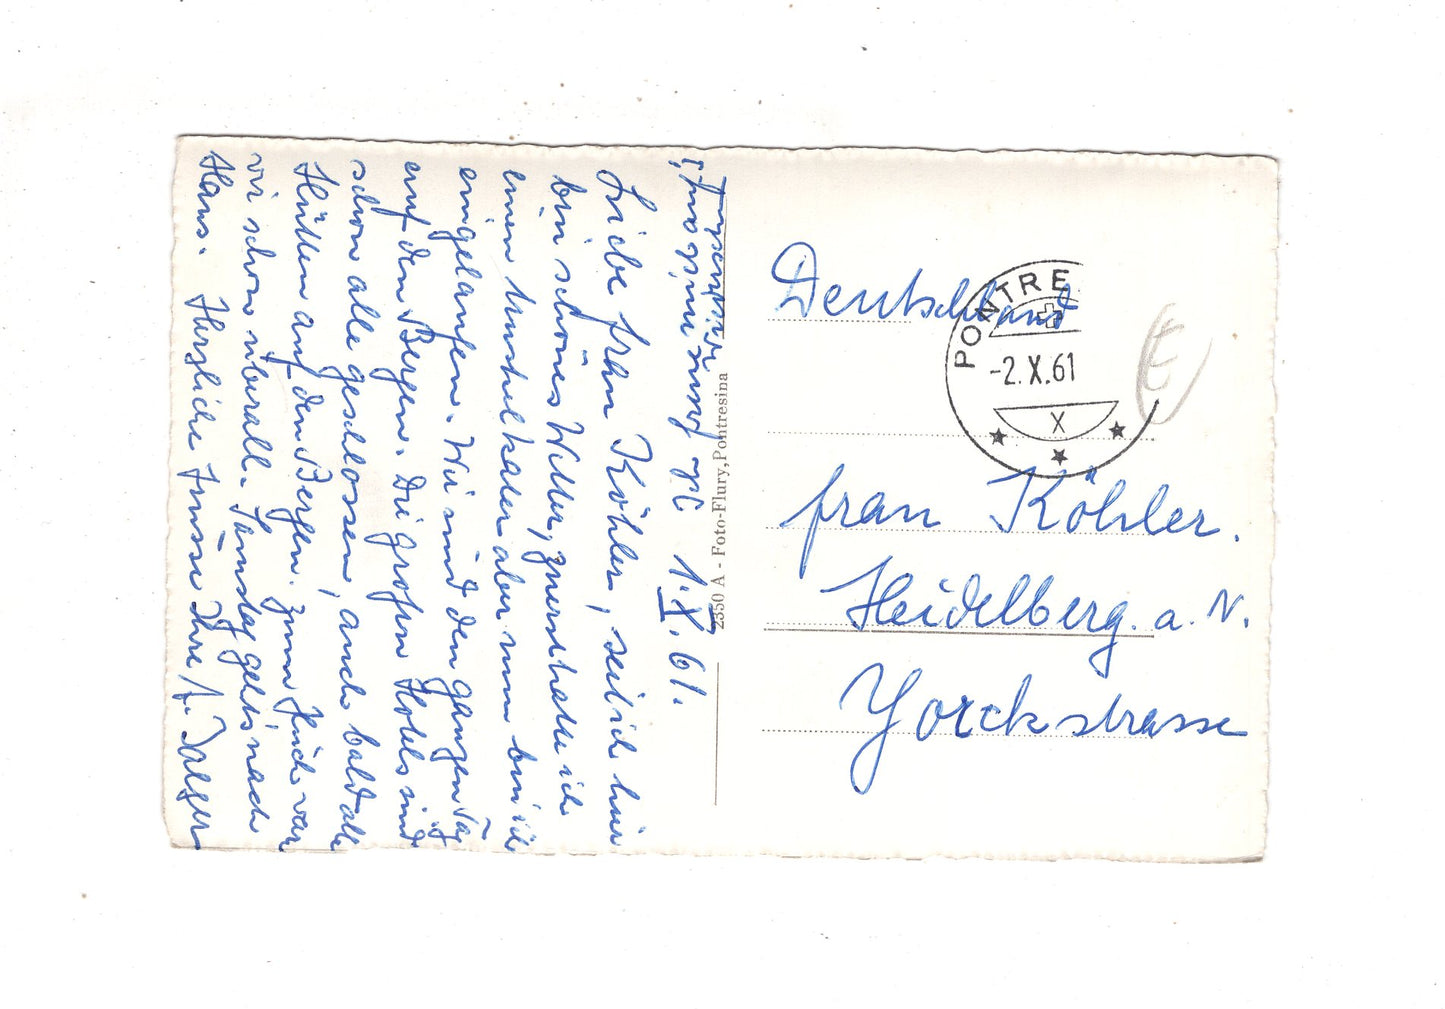 1.X.61.
Liebe Frau Köhler, seit ich hier
bin schönes Wetter, zuerst hatte ich
einen Muskelkater aber nun bin ich
eingelaufen. Wir sind den ganzen Tag
auf den Bergen. Die grossen Hotels sind
schon alle geschlossen, auch bald alle
Hütten auf den Bergen. Zum Glück war
wir schon überall. Samstag geht's nach
Haus. Herzliche Grüsse Ihre
2350 A - Foto-Flury, Pontresina
Deutschland
PONTRE
-2.X.61
X
Frau Köhler.
Heidelberg. a. N.
Yorckstrasse